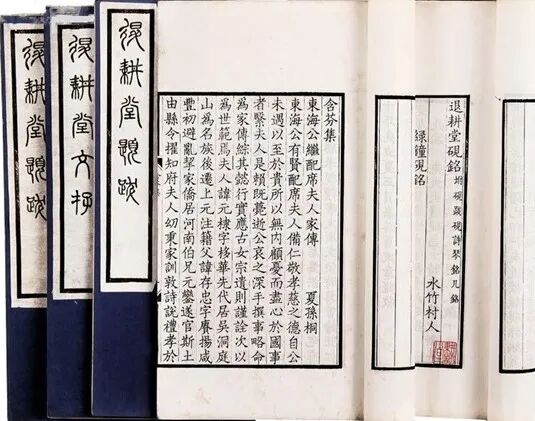 退耕堂硯銘 坿硯題硯詩琴銘几銘
水竹村人
綠鐘硯銘
含芬集
東海公繼配席夫人家傳 夏孫桐
東海公有賢配席夫人備仁敬孝慈之德自公
未遇以至於貴所以無內顧憂而盡心於國事
者繄夫人是賴既薨逝公哀之深手撰事略命
為家傳綜其懿行實應古女宗遺則謹詮次以
為世範焉夫人諱元棣字移華先代居吳洞庭
山為名族後遷上元注籍父諱存忠字賡揚咸
豐初避亂挈家僑居河南伯兄元鑾遂官斯土
由縣令擢知府夫人幼秉家訓敦詩說禮孝於
退耕堂題跋
退耕堂文存
退耕堂題跋